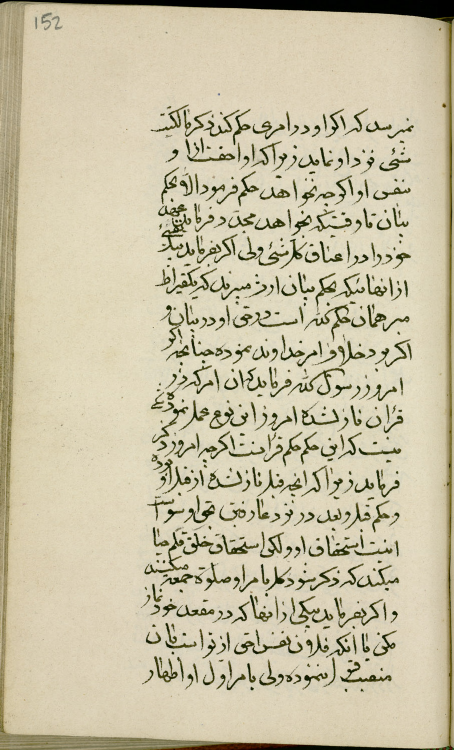 152
نمیرسد که اگر او در امری حکم کند ذکر مالکیت
شئی نزد او نماید زیرا که او احقست از او
بنفس او اگرچه نخواهد حکم فرمود الا بحکم
بیان تا وقتیکه نخواهد مجدد فرماید
خود را در اعناق کلشئی ولی اگر بفرماید بیک
از انهائیکه بحکم بیان ارث میبرند که یکقیراط
مبر همان حکم الله است در حق او در بیان و
اگر رود خلاف امر خداوند نموده چنانچه اگر
امروز رسول الله فرماید که ان امر که در
قران نازل شده امروز این نوع عمل نموده
نیست که این حکم حکم قرانست اگرچه امروز ذکر
فرماید زیرا که انچه قبل نازلشده از قبل او بوده
و حکم قبل و بعد در نزد عارفین بحق او سواست
اینست استحقاق او ولکن استحقاق خلق
میکند که ذکر شود کل بامر او صلوة جمعه میکنند
و اگر بفرماید بیکی از انها که در مقعد خود نماز
مکن یا انکه فلان نفس احق از تو است بان
منصب قبول ننموده ولی بامر اول او اظهار